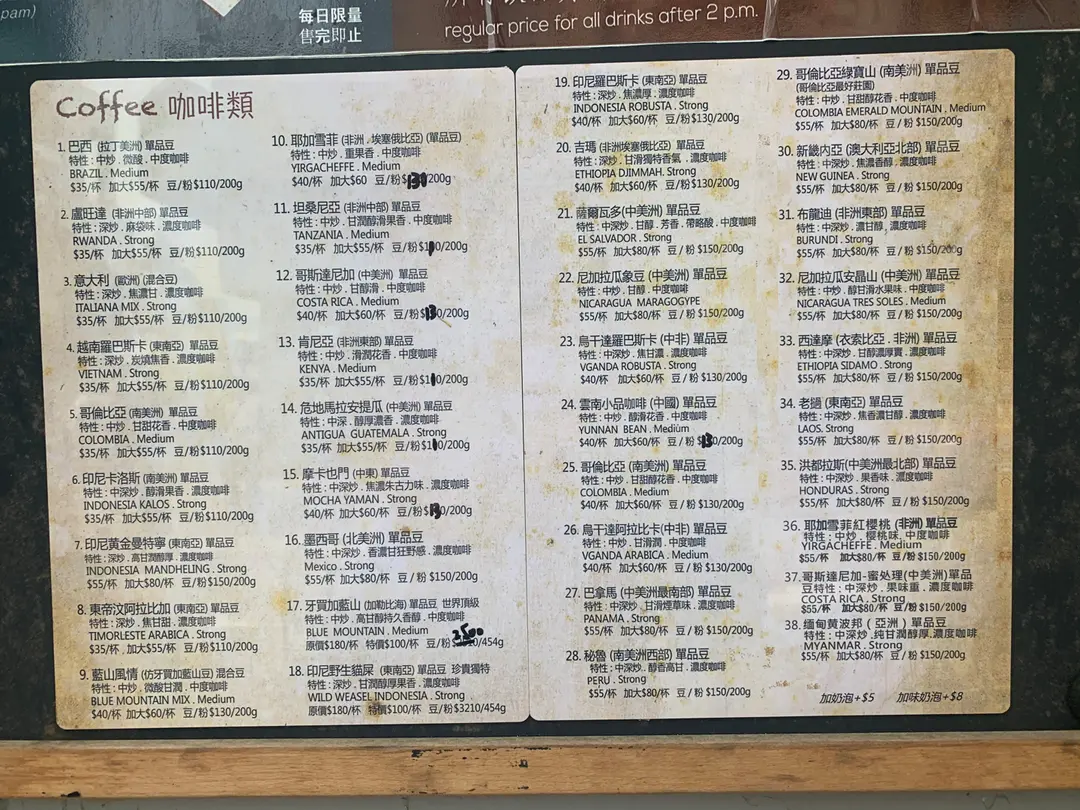 pam)
每日限量
售完即止
regular price for all drinks after 2 p.m.
Coffee 咖啡類
1. 巴西 (拉丁美洲) 單品豆
特性：中炒 . 微酸 . 中度咖啡
BRAZIL . Medium
$35/杯 加大$55/杯 豆/粉$110/200g
2. 盧旺達 (非洲中部) 單品豆
特性：深炒 . 麻袋味 . 濃度咖啡
RWANDA . Strong
$35/杯 加大$55/杯 豆/粉$110/200g
3. 意大利 (歐洲) (混合豆)
特性：深炒 . 焦濃甘 . 濃度咖啡
ITALIANA MIX . Strong
$35/杯 加大$55/杯 豆/粉$110/200g
4. 越南羅巴斯卡 (東南亞) 單品豆
特性：深炒 . 炭燒焦香 . 濃度咖啡
VIETNAM . Strong
$35/杯 加大$55/杯 豆/粉$110/200g
5. 哥倫比亞 (南美洲) 單品豆
特性：中炒 . 甘甜花香 . 中度咖啡
COLOMBIA . Medium
$35/杯 加大$55/杯 豆/粉$110/200g
6. 印尼卡洛斯 (南美洲) 單品豆
特性：中深炒 . 醇滑果香 . 濃度咖啡
INDONESIA KALOS . Strong
$35/杯 加大$55/杯 豆/粉$110/200g
7. 印尼黃金曼特寧 (東南亞) 單品豆
特性：深炒 . 高甘潤醇厚 . 濃度咖啡
INDONESIA MANDHELING . Strong
$55/杯 加大$80/杯 豆/粉$150/200g
8. 東帝汶阿拉比加 (東南亞) 單品豆
特性：深炒 . 焦甘甜 . 濃度咖啡
TIMORLESTE ARABICA . Strong
$35/杯 加大$55/杯 豆/粉$110/200g
9. 藍山風情 (仿牙買加藍山豆) 混合豆
特性：中炒 . 微酸甘潤 . 中度咖啡
BLUE MOUNTAIN MIX . Medium
$40/杯 加大$60/杯 豆/粉$130/200g
10. 耶加雪菲 (非洲 , 埃塞俄比亞) (單品豆)
特性：中炒 . 重果香 . 中度咖啡
YIRGACHEFFE . Medium
$40/杯 加大$60 豆/粉$130/200g
11. 坦桑尼亞 (非洲中部) 單品豆
特性：中炒 . 甘潤醇滑果香 . 中度咖啡
TANZANIA . Medium
$35/杯 加大$55/杯 豆/粉$110/200g
12. 哥斯達尼加 (中美洲) 單品豆
特性：中炒 . 甘醇滑 . 中度咖啡
COSTA RICA . Medium
$40/杯 加大$60/杯 豆/粉$130/200g
13. 肯尼亞 (非洲東部) 單品豆
特性：中炒 . 滑潤花香 . 中度咖啡
KENYA . Medium
$35/杯 加大$55/杯 豆/粉$110/200g
14. 危地馬拉安提瓜 (中美洲) 單品豆
特性：中深 . 醇厚濃香 . 濃度咖啡
ANTIGUA GUATEMALA . Strong
$35/杯 加大$55/杯 豆/粉$110/200g
15. 摩卡也門 (中東) 單品豆
特性：中深炒 . 焦濃朱古力味 . 濃度咖啡
MOCHA YAMAN . Strong
$40/杯 加大$60/杯 豆/粉$130/200g
16. 墨西哥 (北美洲) 單品豆
特性：中深炒 . 香濃甘狂野感 . 濃度咖啡
Mexico . Strong
$55/杯 加大$80/杯 豆/粉 $150/200g
17. 牙買加藍山 (加勒比海) 單品豆 世界頂級
特性：中炒 . 高甘醇持久香醇 . 中度咖啡
BLUE MOUNTAIN . Medium
原價$180/杯 特價$100/杯 豆/粉 2500/454g
18. 印尼野生貓屎 (東南亞) 單品豆 珍貴獨特
特性：深炒 . 甘潤醇厚果香 . 濃度咖啡
WILD WEASEL INDONESIA . Strong
原價$180/杯 特價$100/杯 豆/粉$3210/454g
19. 印尼羅巴斯卡 (東南亞) 單品豆
特性：深炒 . 焦濃厚 . 濃度咖啡
INDONESIA ROBUSTA . Strong
$40/杯 加大$60/杯 豆/粉$130/200g
20. 吉瑪 (非洲埃塞俄比亞) 單品豆
特性：深炒 . 甘滑獨特香氣 . 濃度咖啡
ETHIOPIA DJIMMAH. Strong
$40/杯 加大$60/杯 豆/粉$130/200g
21. 薩爾瓦多(中美洲) 單品豆
特性：中深炒 . 甘醇 . 芳香 . 帶略酸 . 中度咖啡
EL SALVADOR . Strong
$55/杯 加大$80/杯 豆/粉 $150/200g
22. 尼加拉瓜象豆 (中美洲) 單品豆
特性：中炒 . 甘醇 . 中度咖啡
NICARAGUA MARAGOGYPE
$55/杯 加大$80/杯 豆/粉 $150/200g
23. 烏干達羅巴斯卡 (中非) 單品豆
特性：中深炒 . 焦甘濃 . 濃度咖啡
VGANDA ROBUSTA . Strong
$40/杯 加大$60/杯 豆/粉 $130/200g
24. 雲南小品咖啡 (中國) 單品豆
特性：中炒 . 醇滑花香 . 中度咖啡
YUNNAN BEAN . Medium
$40/杯 加大$60/杯 豆 / 粉 $130/200g
25. 哥倫比亞 (南美洲) 單品豆
特性：中炒 . 甘甜醇花香 . 中度咖啡
COLOMBIA . Medium
$40/杯 加大$60/杯 豆 / 粉 $130/200g
26. 烏干達阿拉比卡(中非) 單品豆
特性：中炒 . 甘滑潤 . 中度咖啡
VGANDA ARABICA . Medium
$40/杯 加大$60/杯 豆 / 粉 $130/200g
27. 巴拿馬 (中美洲最南部) 單品豆
特性：中深炒 . 甘滑煙草味 . 濃度咖啡
PANAMA . Strong
$55/杯 加大$80/杯 豆 / 粉 $150/200g
28. 秘魯 (南美洲西部) 單品豆
特性：中深炒 . 醇香高甘 . 濃度咖啡
PERU . Strong
$55/杯 加大$80/杯 豆 / 粉 $150/200g
29. 哥倫比亞綠寶山 (南美洲) 單品豆
(哥倫比亞最好莊園)
特性：中炒 . 甘甜醇花香 . 中度咖啡
COLOMBIA EMERALD MOUNTAIN . Medium
$55/杯 加大$80/杯 豆 / 粉 $150/200g
30. 新畿內亞 (澳大利亞北部) 單品豆
特性：中深炒 . 焦濃香醇 . 濃度咖啡
NEW GUINEA . Strong
$55/杯 加大$80/杯 豆 / 粉 $150/200g
31. 布龍迪 (非洲東部) 單品豆
特性：中深炒 . 濃甘醇 . 濃度咖啡
BURUNDI . Strong
$55/杯 加大$80/杯 豆 / 粉 $150/200g
32. 尼加拉瓜安晶山 (中美洲) 單品豆
特性：中炒 . 醇甘滑水果味 . 中度咖啡
NICARAGUA TRES SOLES . Medium
$55/杯 加大$80/杯 豆 / 粉 $150/200g
33. 西達摩 (衣索比亞 . 非洲) 單品豆
特性：中深炒 . 甘醇濃厚實 . 濃度咖啡
ETHIOPIA SIDAMO . Strong
$55/杯 加大$80/杯 豆 / 粉 $150/200g
34. 老撾 (東南亞) 單品豆
特性：中深炒 . 焦香濃甘醇 . 濃度咖啡
LAOS. Strong
$55/杯 加大$80/杯 豆 / 粉 $150/200g
35. 洪都拉斯(中美洲最北部) 單品豆
特性：中深炒 . 果香味 . 濃度咖啡
HONDURAS . Strong
$55/杯 加大$80/杯 豆 / 粉 $150/200g
36. 耶加雪菲紅櫻桃 (非洲) 單品豆
特性：中炒 . 櫻桃味 . 中度咖啡
YIRGACHEFFE . Medium
$55/杯 加大$80/杯 豆 / 粉 $150/200g
37. 哥斯達尼加-蜜处理(中美洲)單品
豆特性：中深炒 . 果味重 . 濃度咖啡
COSTA RICA . Strong
$55/杯 加大$80/杯 豆 / 粉 $150/200g
38. 緬甸黄波邦 ( 亞洲 ) 單品豆
特性：中深炒 . 纯甘潤醇厚 . 濃度咖啡
MYANMAR . Strong
$55/杯 加大$80/杯 豆 / 粉 $150/200g
加奶泡+$5 加味奶泡+$8